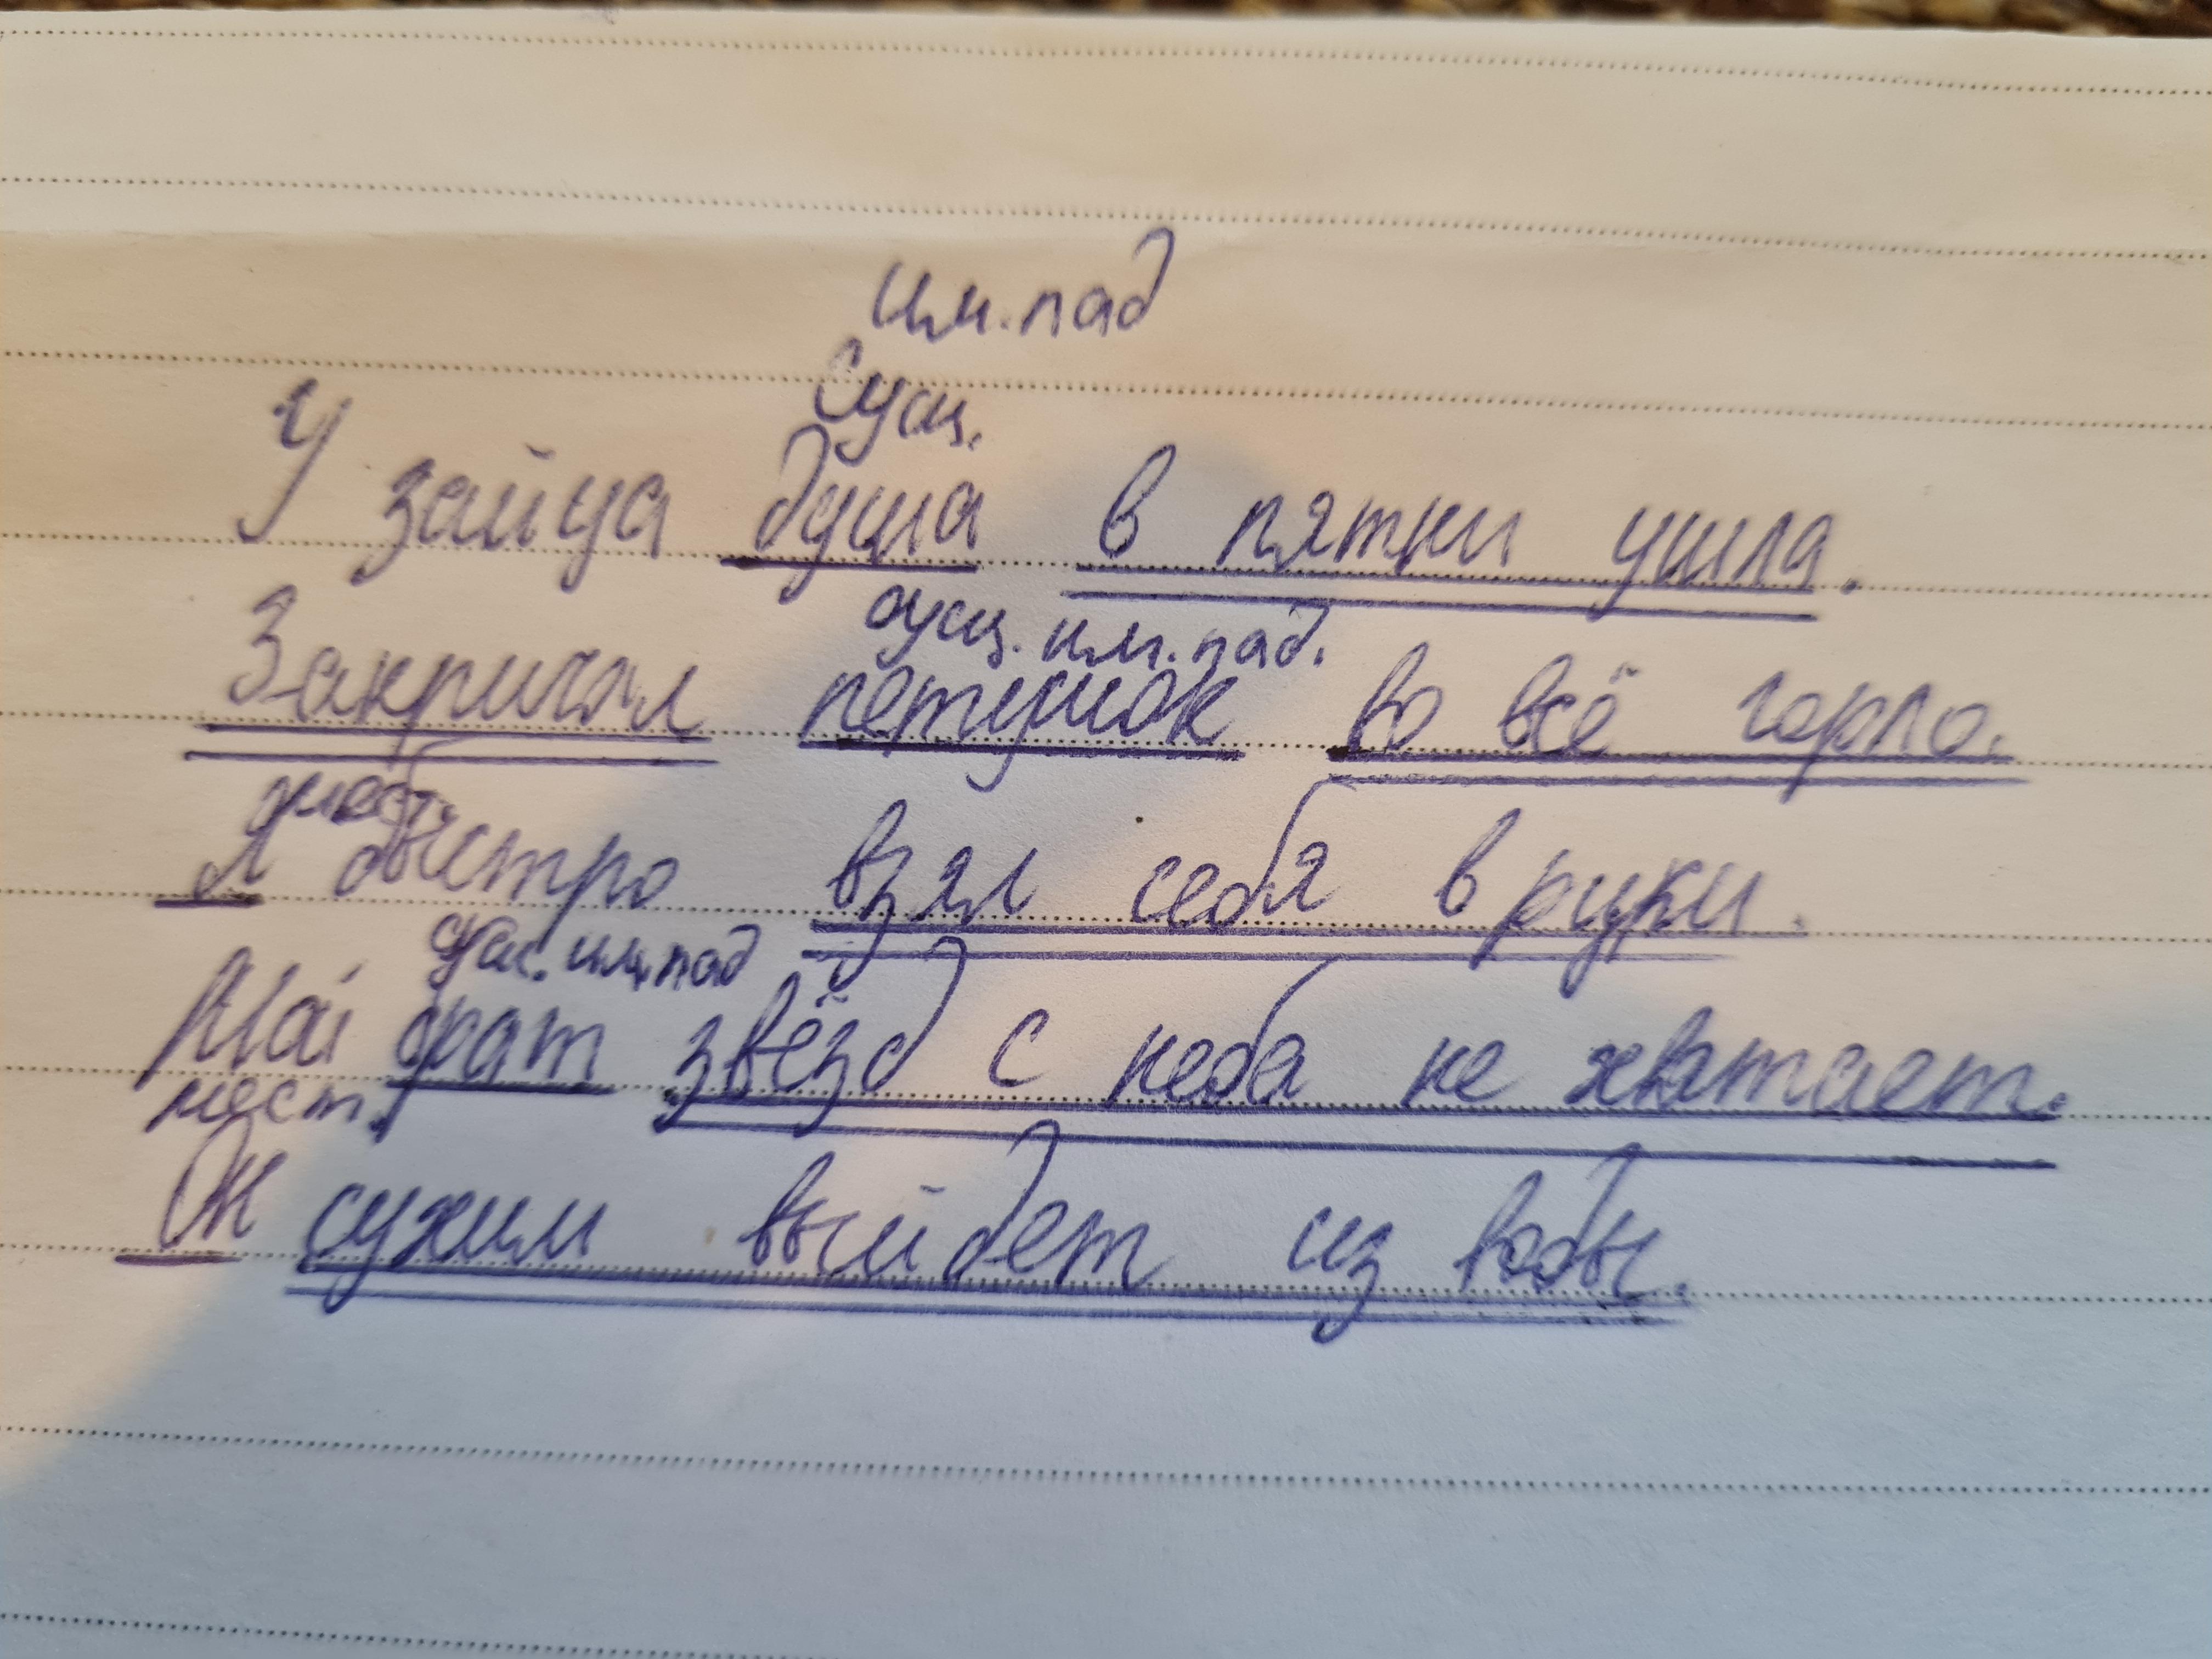 им. пад
Сущ.
У зайца душа в пятки ушла.
сущ. им. пад.
Закричал петушок во всё горло.
мест.
Я быстро взял себя в руки.
им. пад
Мой брат звёзд с неба не хватает.
мест.
Он сухим выйдет из воды.